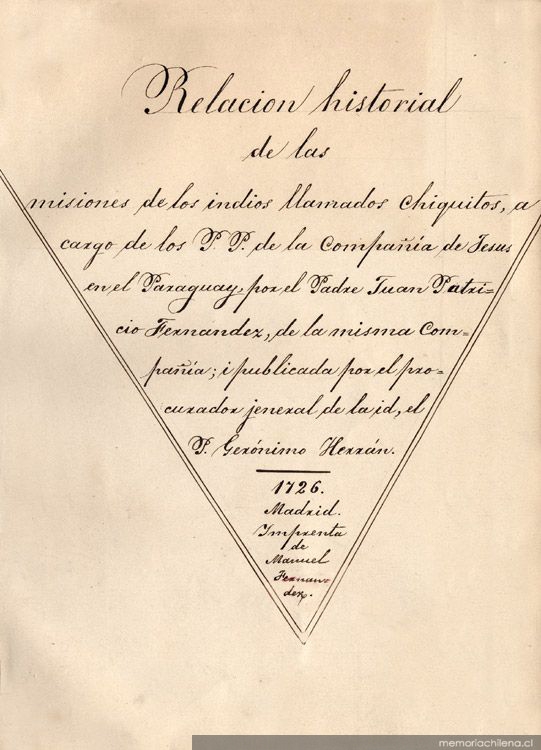 Relacion historial
de las
misiones de los indios llamados chiquitos, a
cargo de los P. P. de la Compañía de Jesus
en el Paraguay, por el Padre Juan Patri-
cio Fernandez, de la misma Com-
pañía; i publicada por el pro-
curador jeneral de la id, el
P. Gerónimo Herrán.
1726.
Madrid.
Imprenta
de
Manuel
Fernan-
dez.
memoriachilena.cl